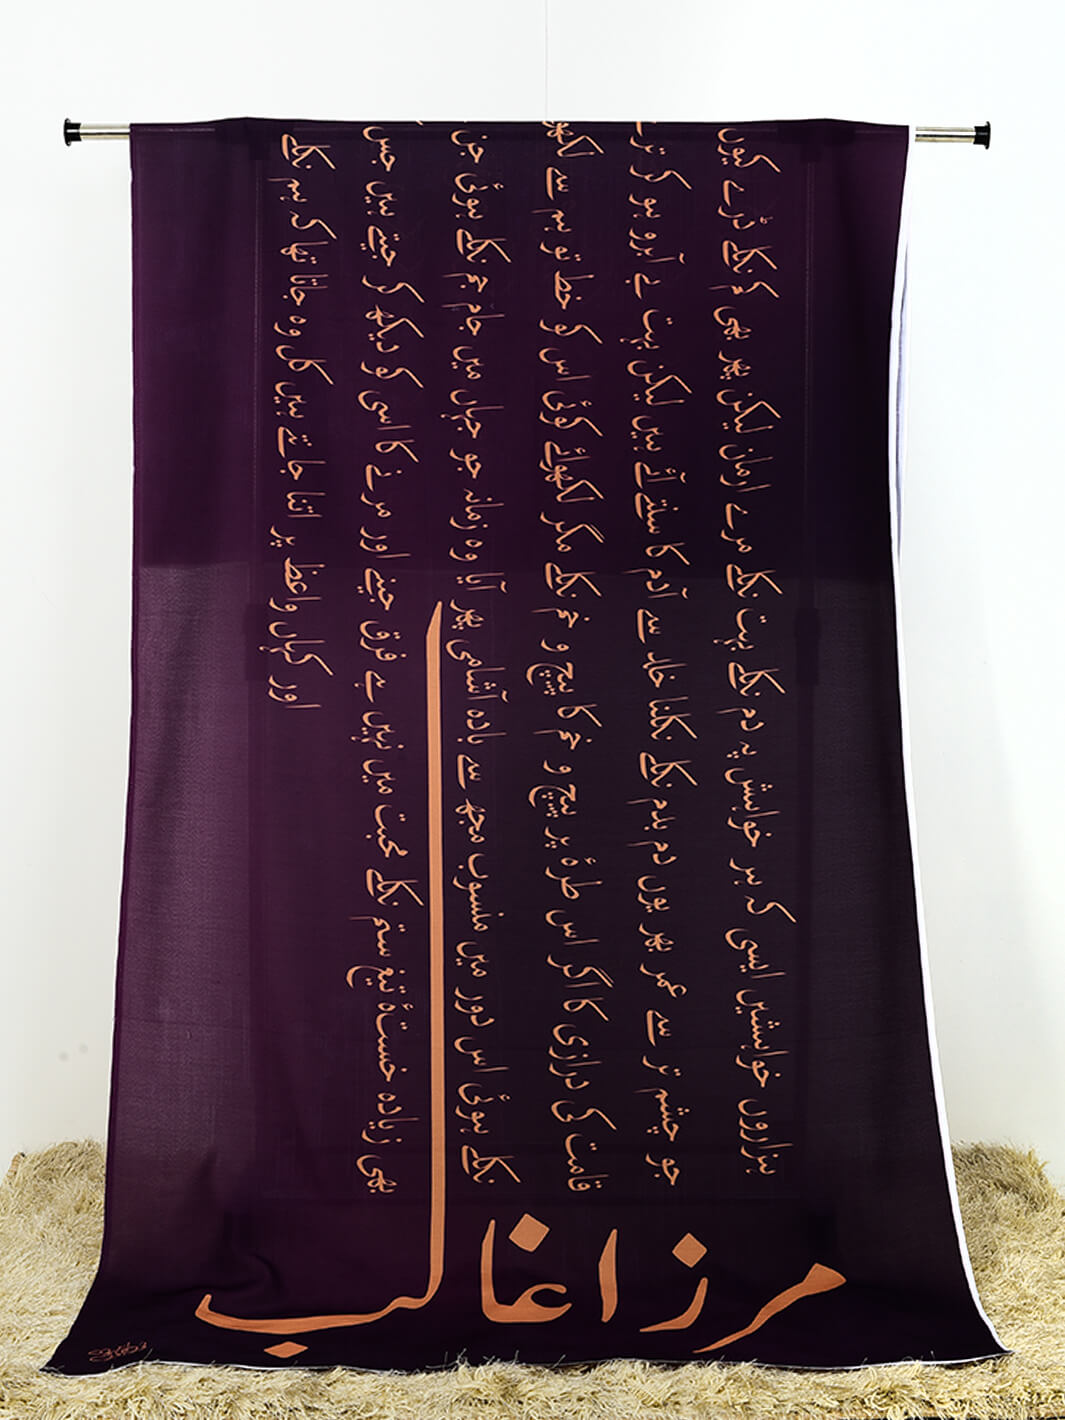 ہزاروں خواہشیں ایسی کہ ہر خواہش پہ دم نکلے بہت نکلے مرے ارمان لیکن پھر بھی کم نکلے ڈرے کیوں
جو چشم تر سے عمر بھر یوں دم بدم نکلے نکلنا خلد سے آدم کا سنتے آئے ہیں لیکن بہت بے آبرو ہو کر
قامت کی درازی کا اگر اس طرۂ پر پیچ و خم کا پیچ و خم نکلے مگر لکھوائے کوئی اس کو خط تو ہم سے
نکلے ہوئی اس دور میں منسوب مجھ سے بادہ آشامی پھر آیا وہ زمانہ جو جہاں میں جام جم نکلے ہوئی جن
بھی زیادہ خستۂ تیغ ستم نکلے محبت میں نہیں ہے فرق جینے اور مرنے کا اسی کو دیکھ کر جیتے ہیں جس
اور کہاں واعظ پر اتنا جانتے ہیں کل وہ جاتا تھا کہ ہم نکلے
مرزا غالب